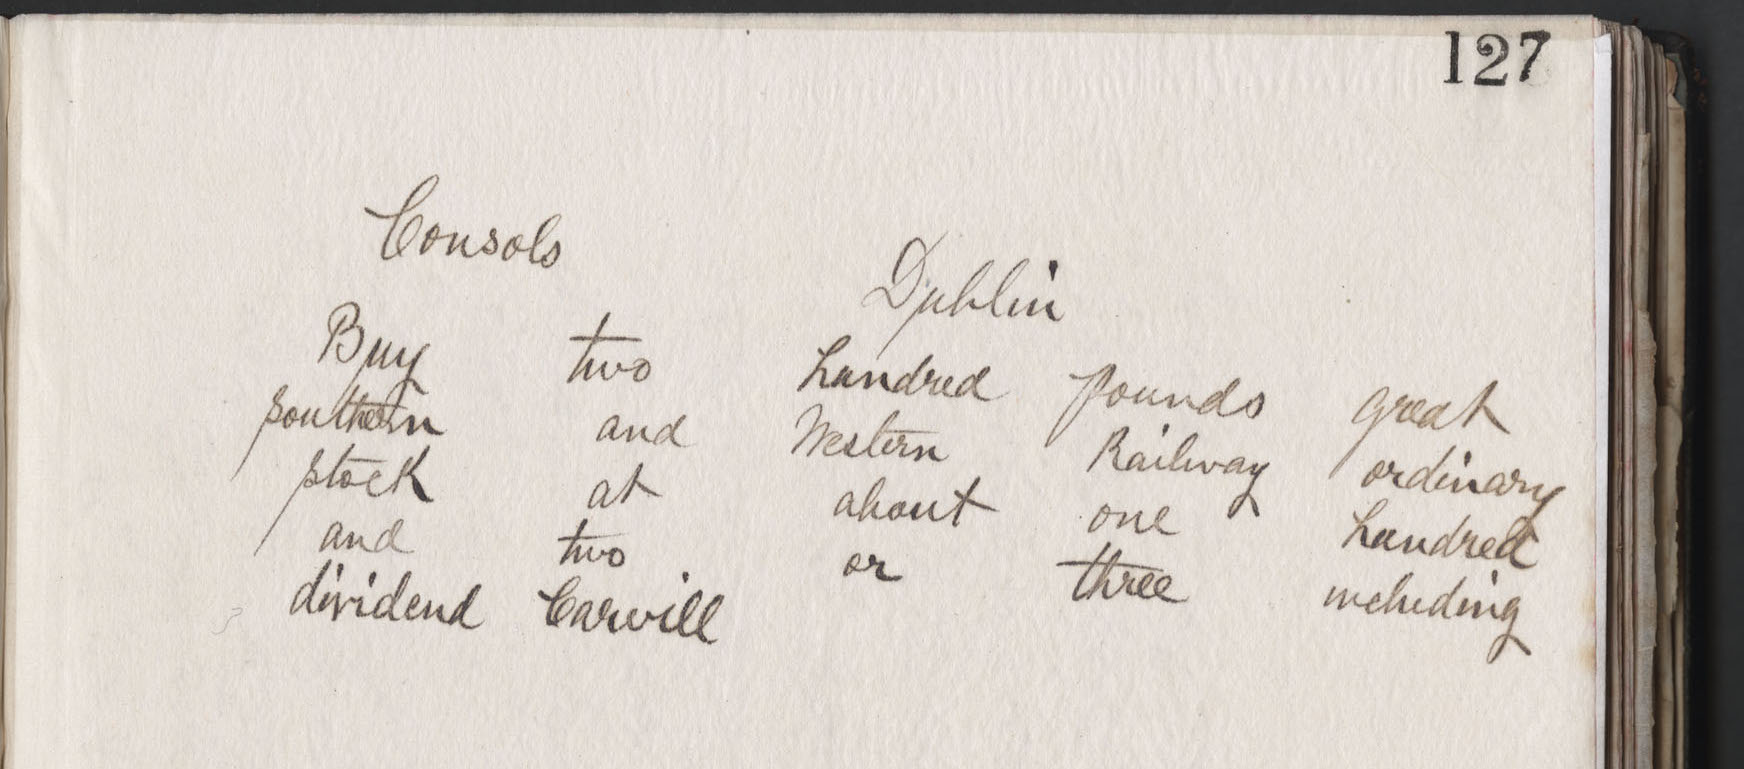 127
Consols
Dublin
Buy two hundred pounds great
southern and Western Railway ordinary
stock at about one hundred
and two or three including
dividend Carvill